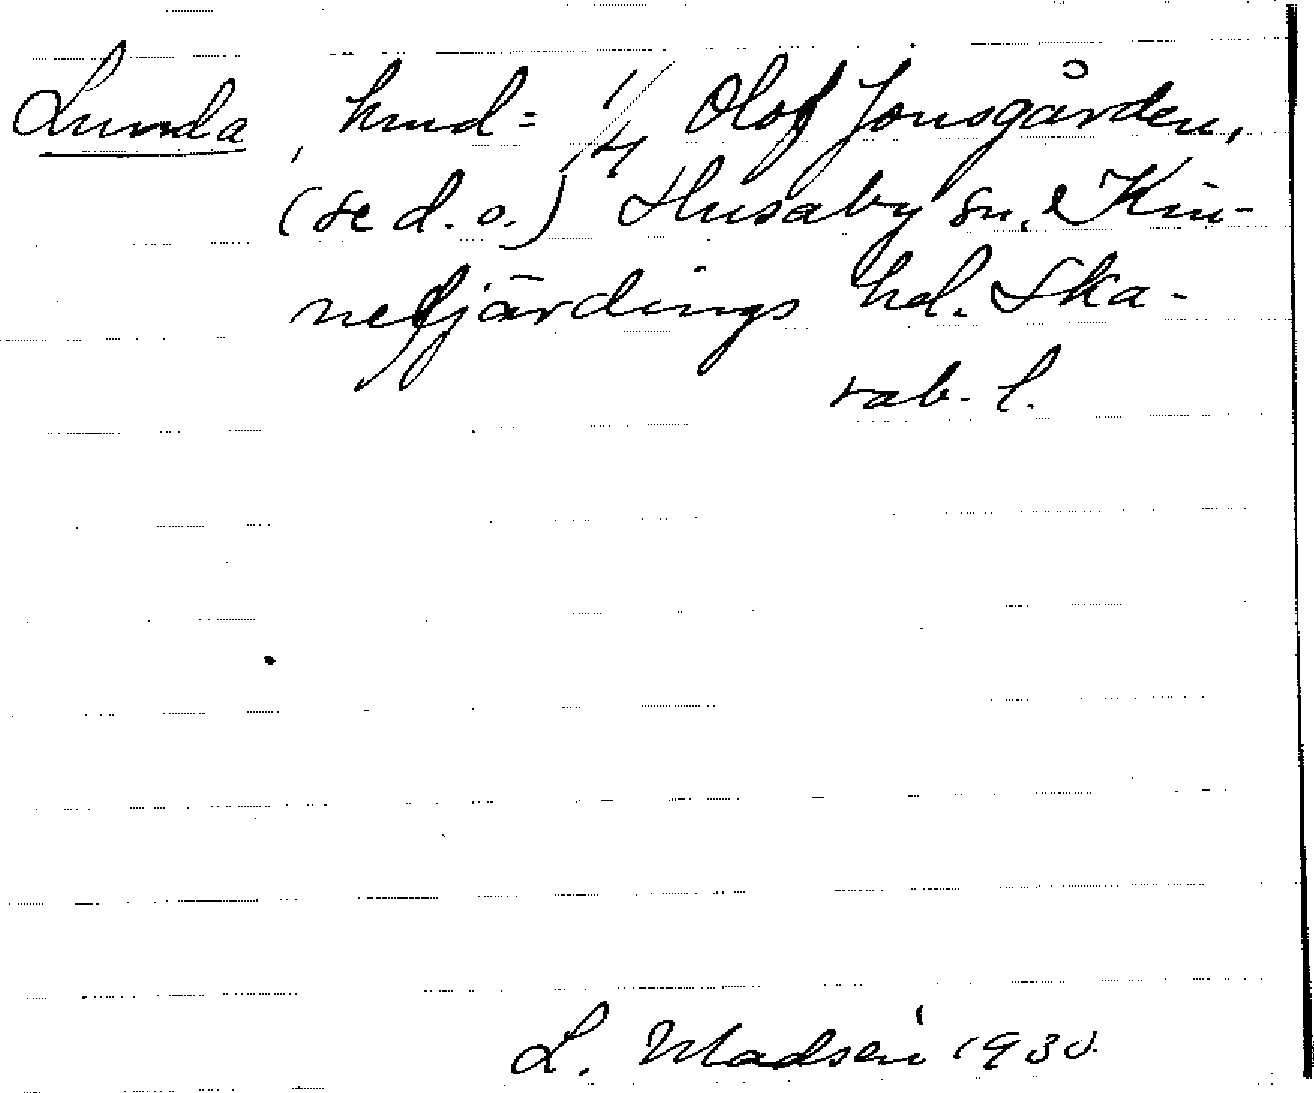 Lunda, hmd = 1/4 Olof Jonsgården,
(se d. o.) Husaby sn, Kin-
nefjärdings hd. Ska-
rab. l.
L. Madsén 1930.